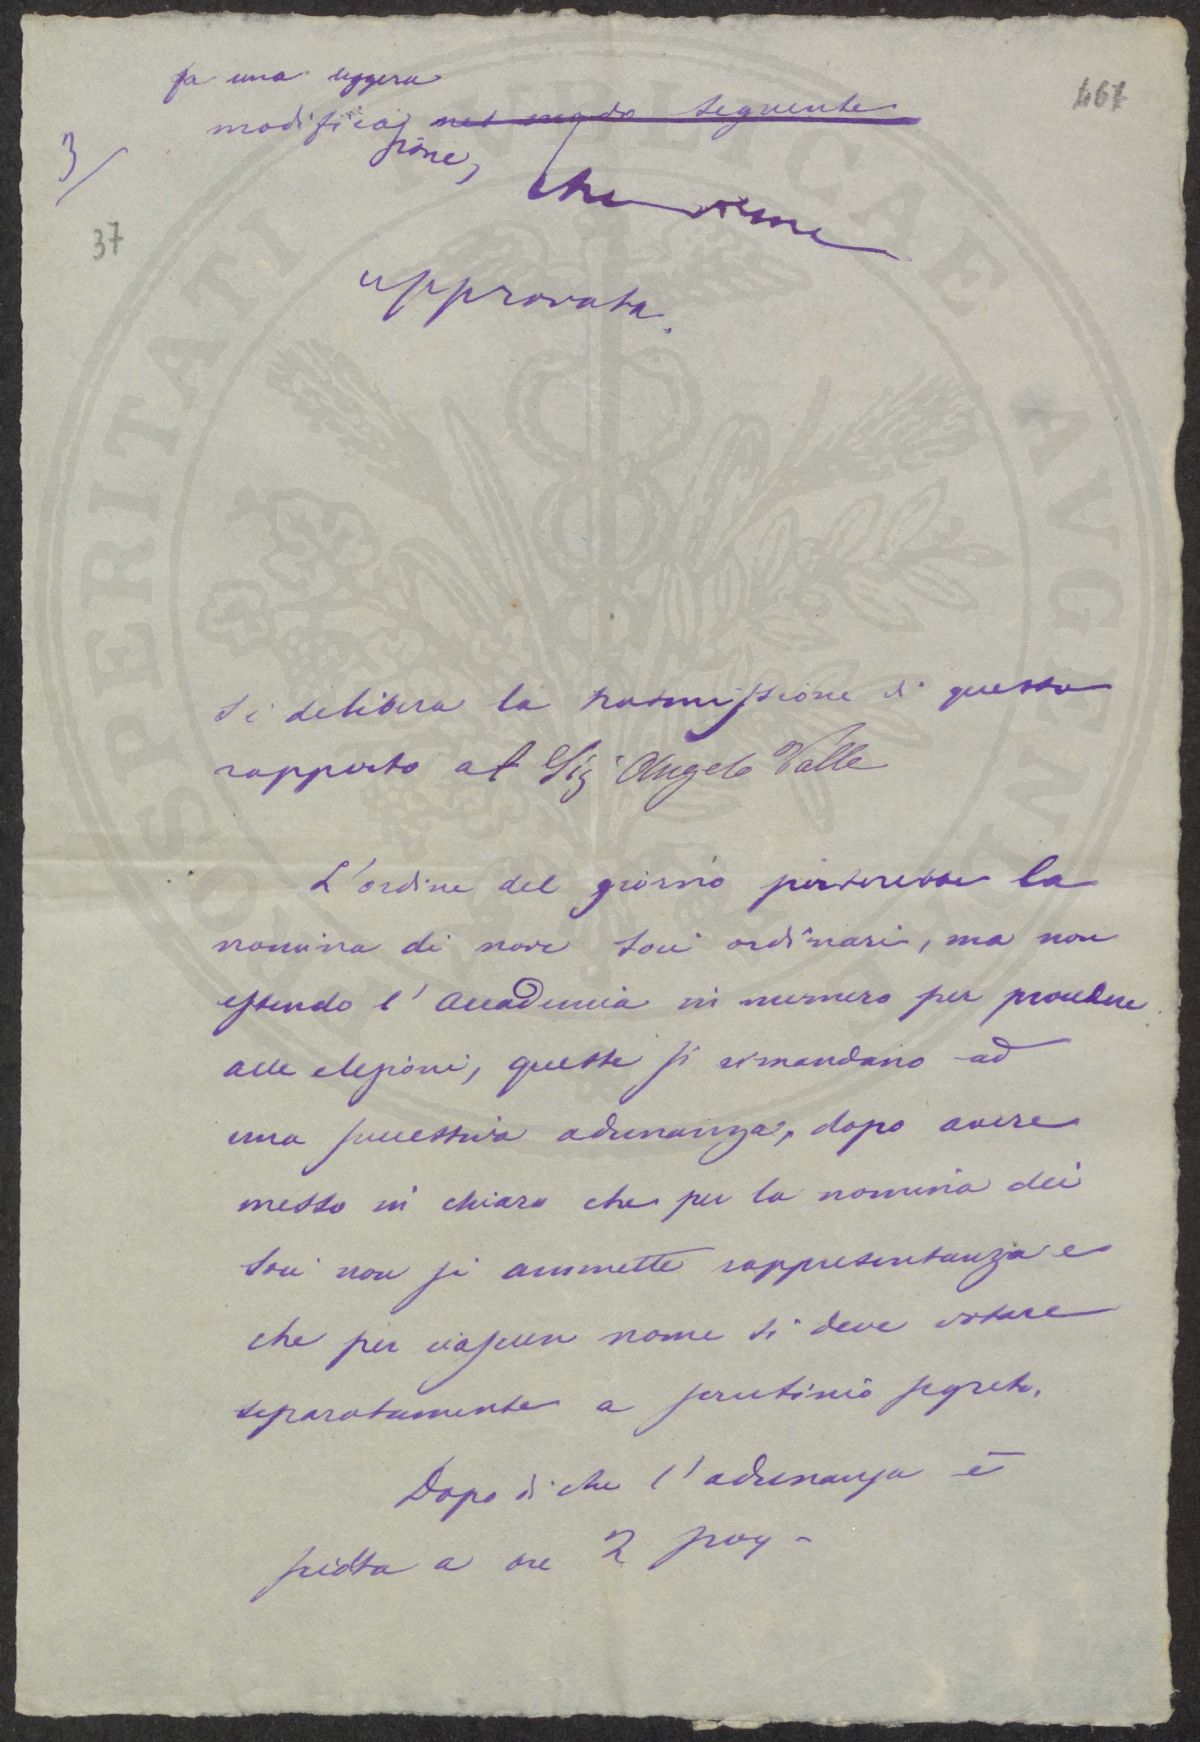 fa una leggera
467
modifica nel modo seguente
zione,
3/
che viene
37
approvata.
PROSPERITATI PVBLICAE AVGENDAE
Si delibera la trasmissione di questo
rapporto al Sig. Angelo Valle
L'ordine del giorno porterebbe la
nomina di nove soci ordinari, ma non
essendo l'Accademia in numero per procedere
alle elezioni, queste si rimandano ad
una successiva adunanza, dopo avere
messo in chiaro che per la nomina dei
soci non si ammette rappresentanza e
che per ciascun nome si deve votare
separatamente a scrutinio segreto.
Dopo di che l'adunanza è
sciolta a ore 2 pom